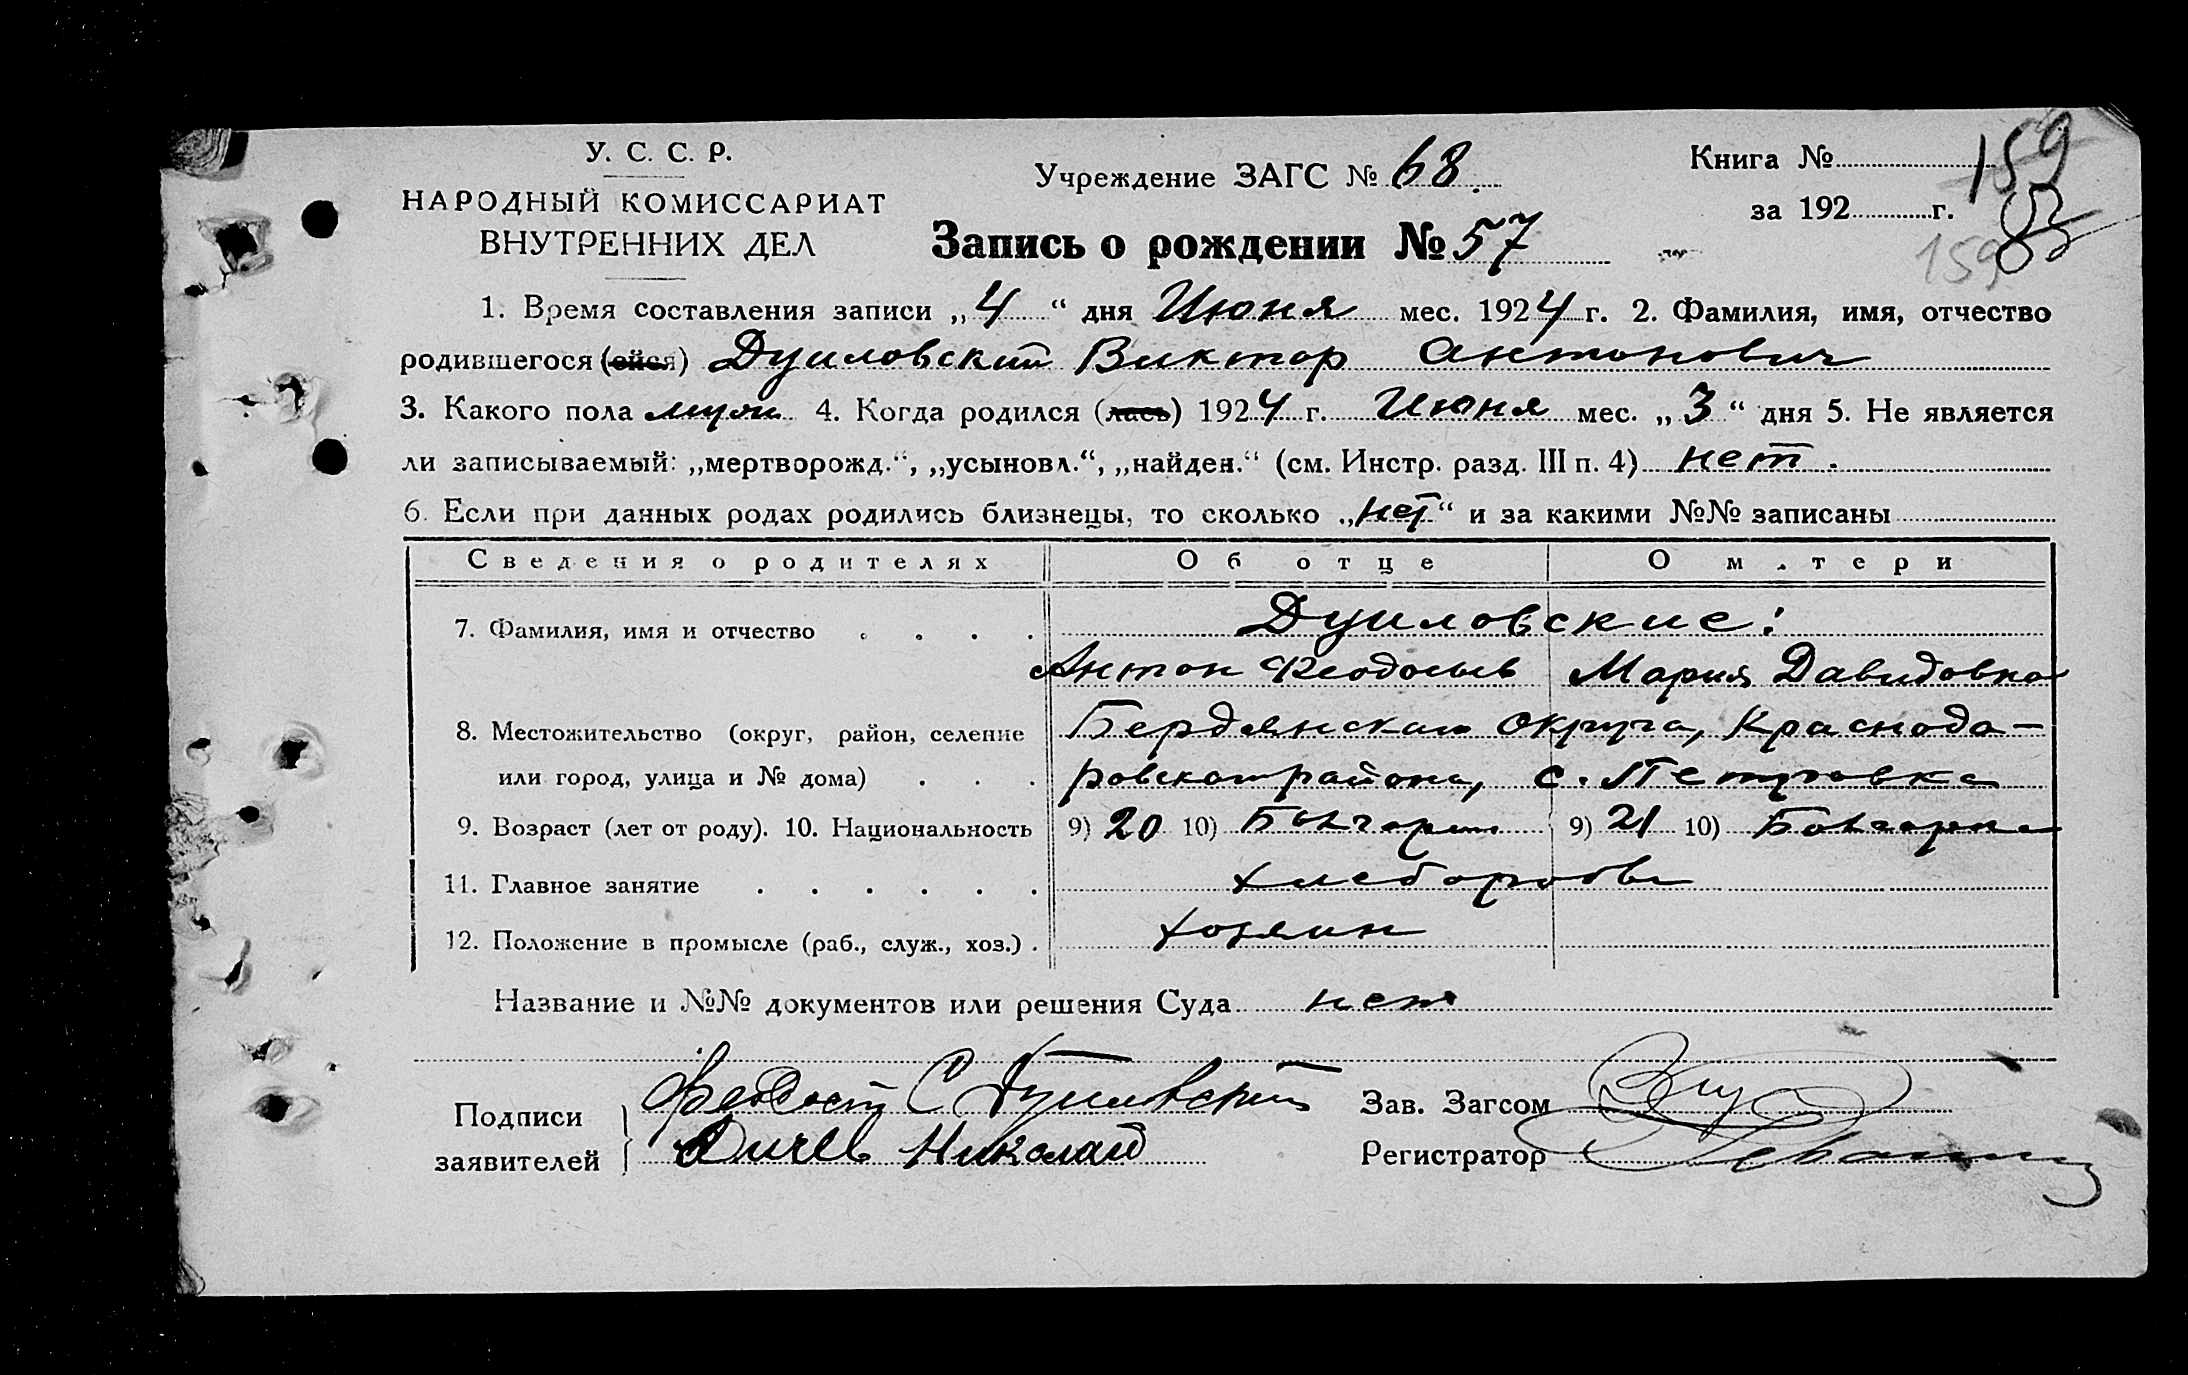 У. С. С. Р.
НАРОДНЫЙ КОМИССАРИАТ
ВНУТРЕННИХ ДЕЛ
Учреждение ЗАГС № 68.
Запись о рождении № 57
Книга № 159
за 192 г.
83
159
1. Время составления записи „4“ дня Июня мес. 1924 г. 2. Фамилия, имя, отчество
родившегося (ейся) Дуиловский Виктор Антонович
3. Какого пола муж 4. Когда родился (лась) 1924 г. Июня мес. „3“ дня 5. Не является
ли записываемый: „мертворожд.“, „усыновл.“, „найден.“ (см. Инстр. разд. III п. 4) нет.
6. Если при данных родах родились близнецы, то сколько „нет“ и за какими №№ записаны
Сведения о родителях Об отце О м.тери
7. Фамилия, имя и отчество . . . . Дуиловские:
Антон Феодосьев Мария Давидовна
8. Местожительство (округ, район, селение Бердянскаго Округа, Краснода-
или город, улица и № дома) . . . ровскаго района, с. Петровка
9. Возраст (лет от роду). 10. Национальность 9) 20 10) Болгарин 9) 21 10) Болгарка
11. Главное занятие . . . . . . хлеборобы
12. Положение в промысле (раб., служ., хоз.) . хозяин
Название и №№ документов или решения Суда нет
Подписи Федосий С Дуиловский Зав. Загсом
заявителей Николай Регистратор